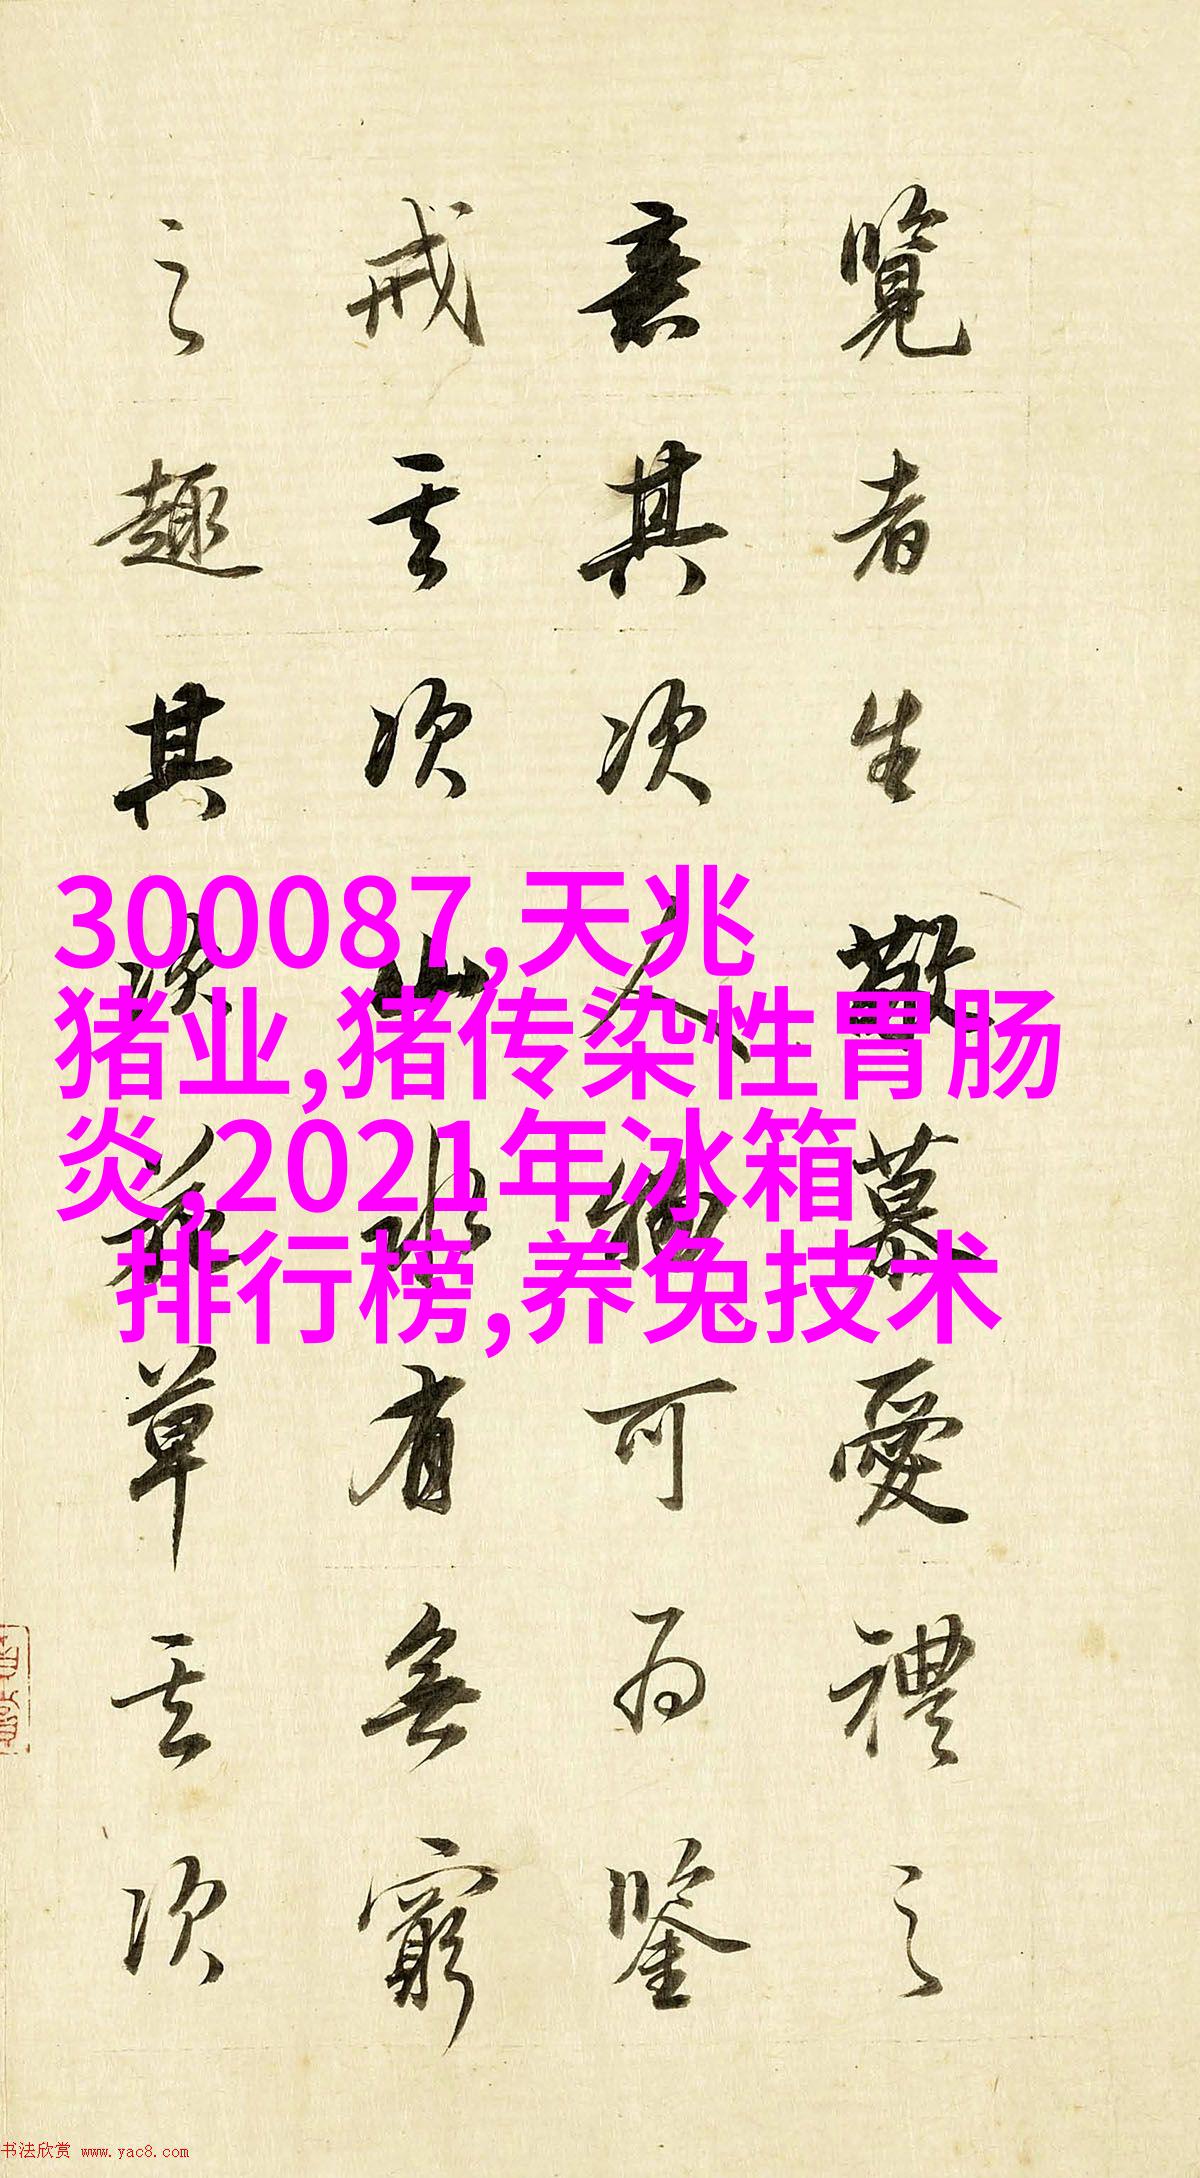 覽者生敬慕愛禮之
意其次人物可為鑒
戒其次山水有無窮
之趣其次草其次
300087,天兆
猪业,猪传染性胃肠
炎,2021年冰箱
排行榜,养兔技术
书法欣赏 www.yac8.com